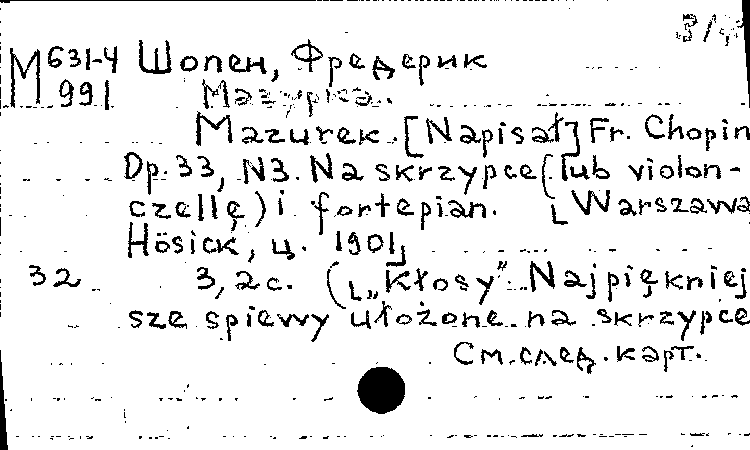 М 631-4 Шопен, Фредерик
991 Мазурка.
Mazurek. [Napisał] Fr. Chopin
Op. 33, N3. Na skrzypce (lub violon-
czellę) i fortepian. [Warszawa
Hösick, ц. 1901]
32 3, 2 с. ([„Kłosy” Najpiękniej
sze spiewy ułożone na skrzypce
См. след. карт.